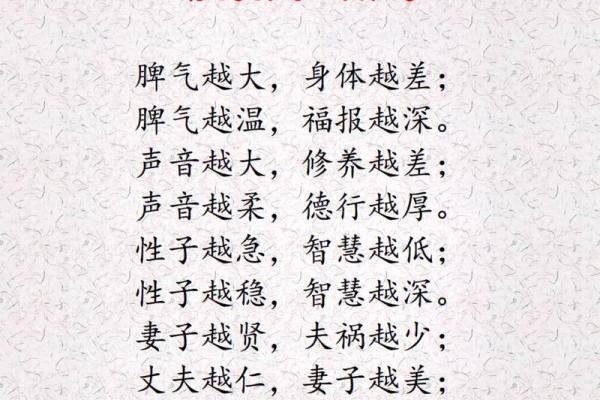 脾气越大，身体越差；
脾气越温，福报越深。
声音越大，修养越差；
声音越柔，德行越厚。
性子越急，智慧越低；
性子越稳，智慧越深。
妻子越贤，夫祸越少；
丈夫越仁，妻子越美；